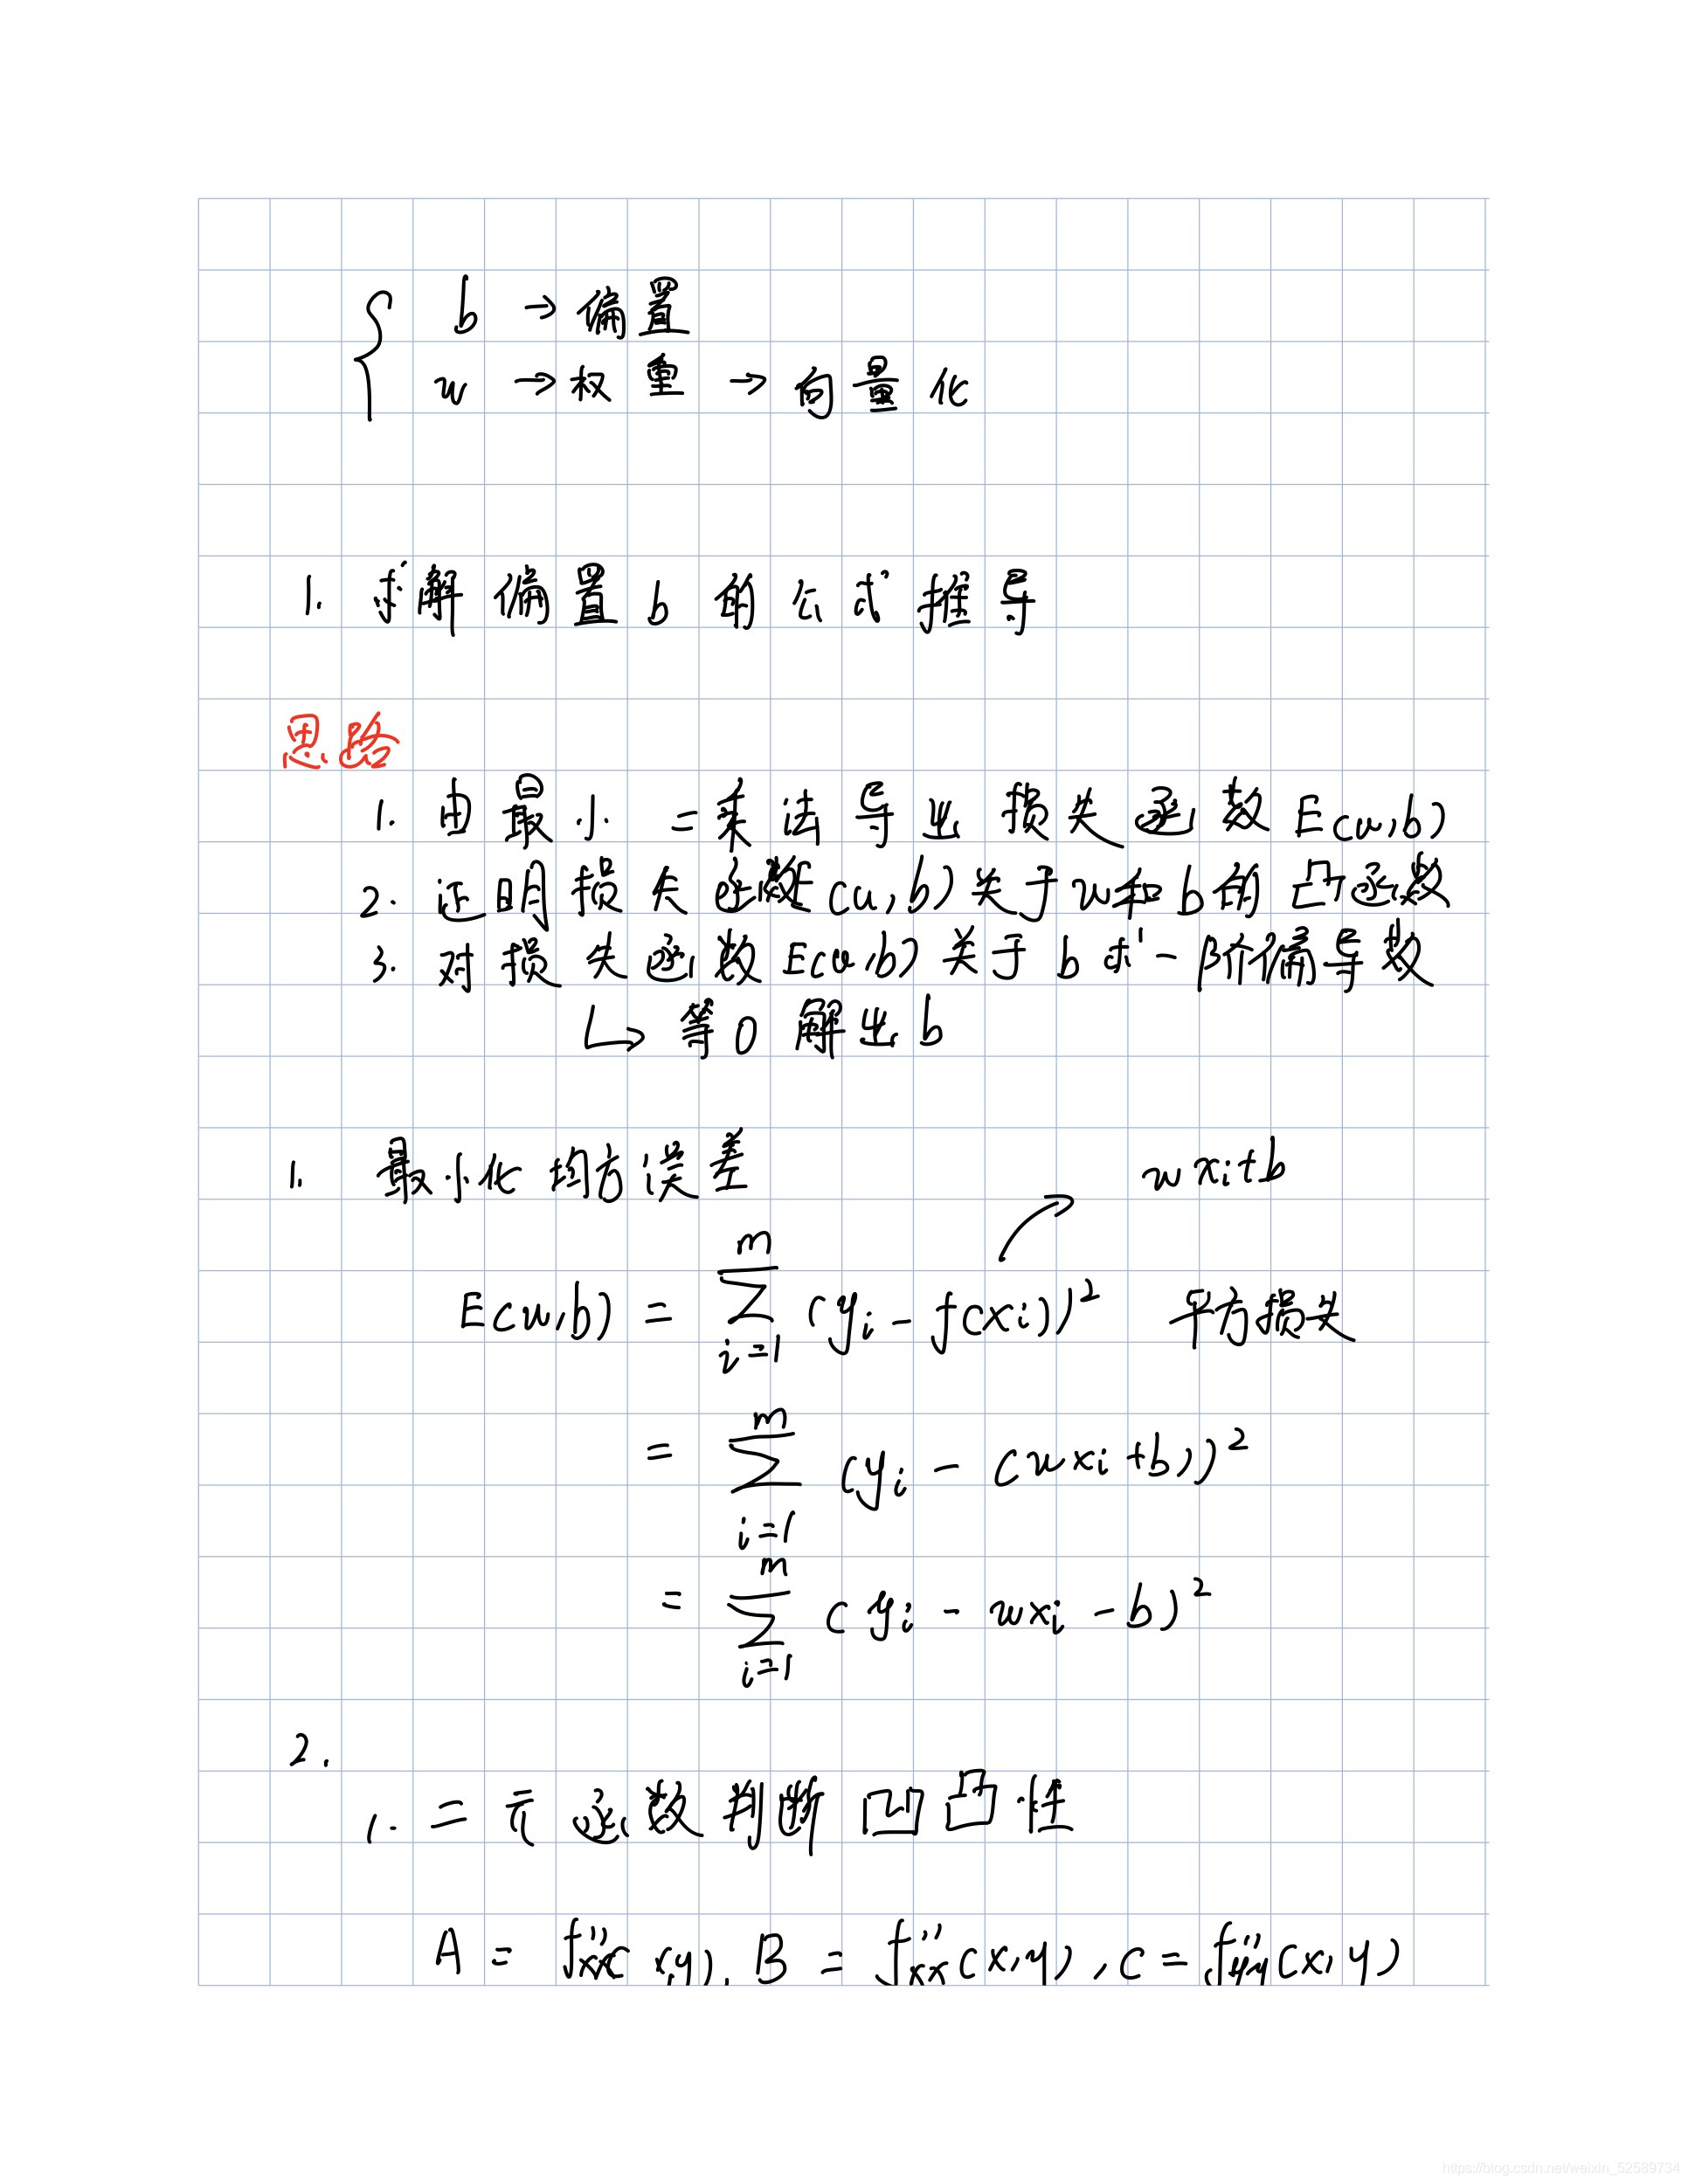 b → 偏置
w → 权重 → 向量化
1. 求解偏置 b 的公式推导
思路
1. 由最小二乘法导出损失函数 E(w,b)
2. 证明损失函数E(w,b)关于w和b的凸函数
3. 对损失函数E(w,b)关于b求一阶偏导数
↳ 等0解出b
1. 最小化均方误差
wxi+b
E(w,b) = ∑_{i=1}^{m} (yi - f(xi))² 平方损失
= ∑_{i=1}^{m} (yi - (wxi+b))²
= ∑_{i=1}^{m} (yi - wxi - b)²
2.
1. 二元函数判断凹凸性
A = f''xx(x,y), B = f''xx(x,y), C = f''yy(x,y)
https://blog.csdn.net/weixin_52589734